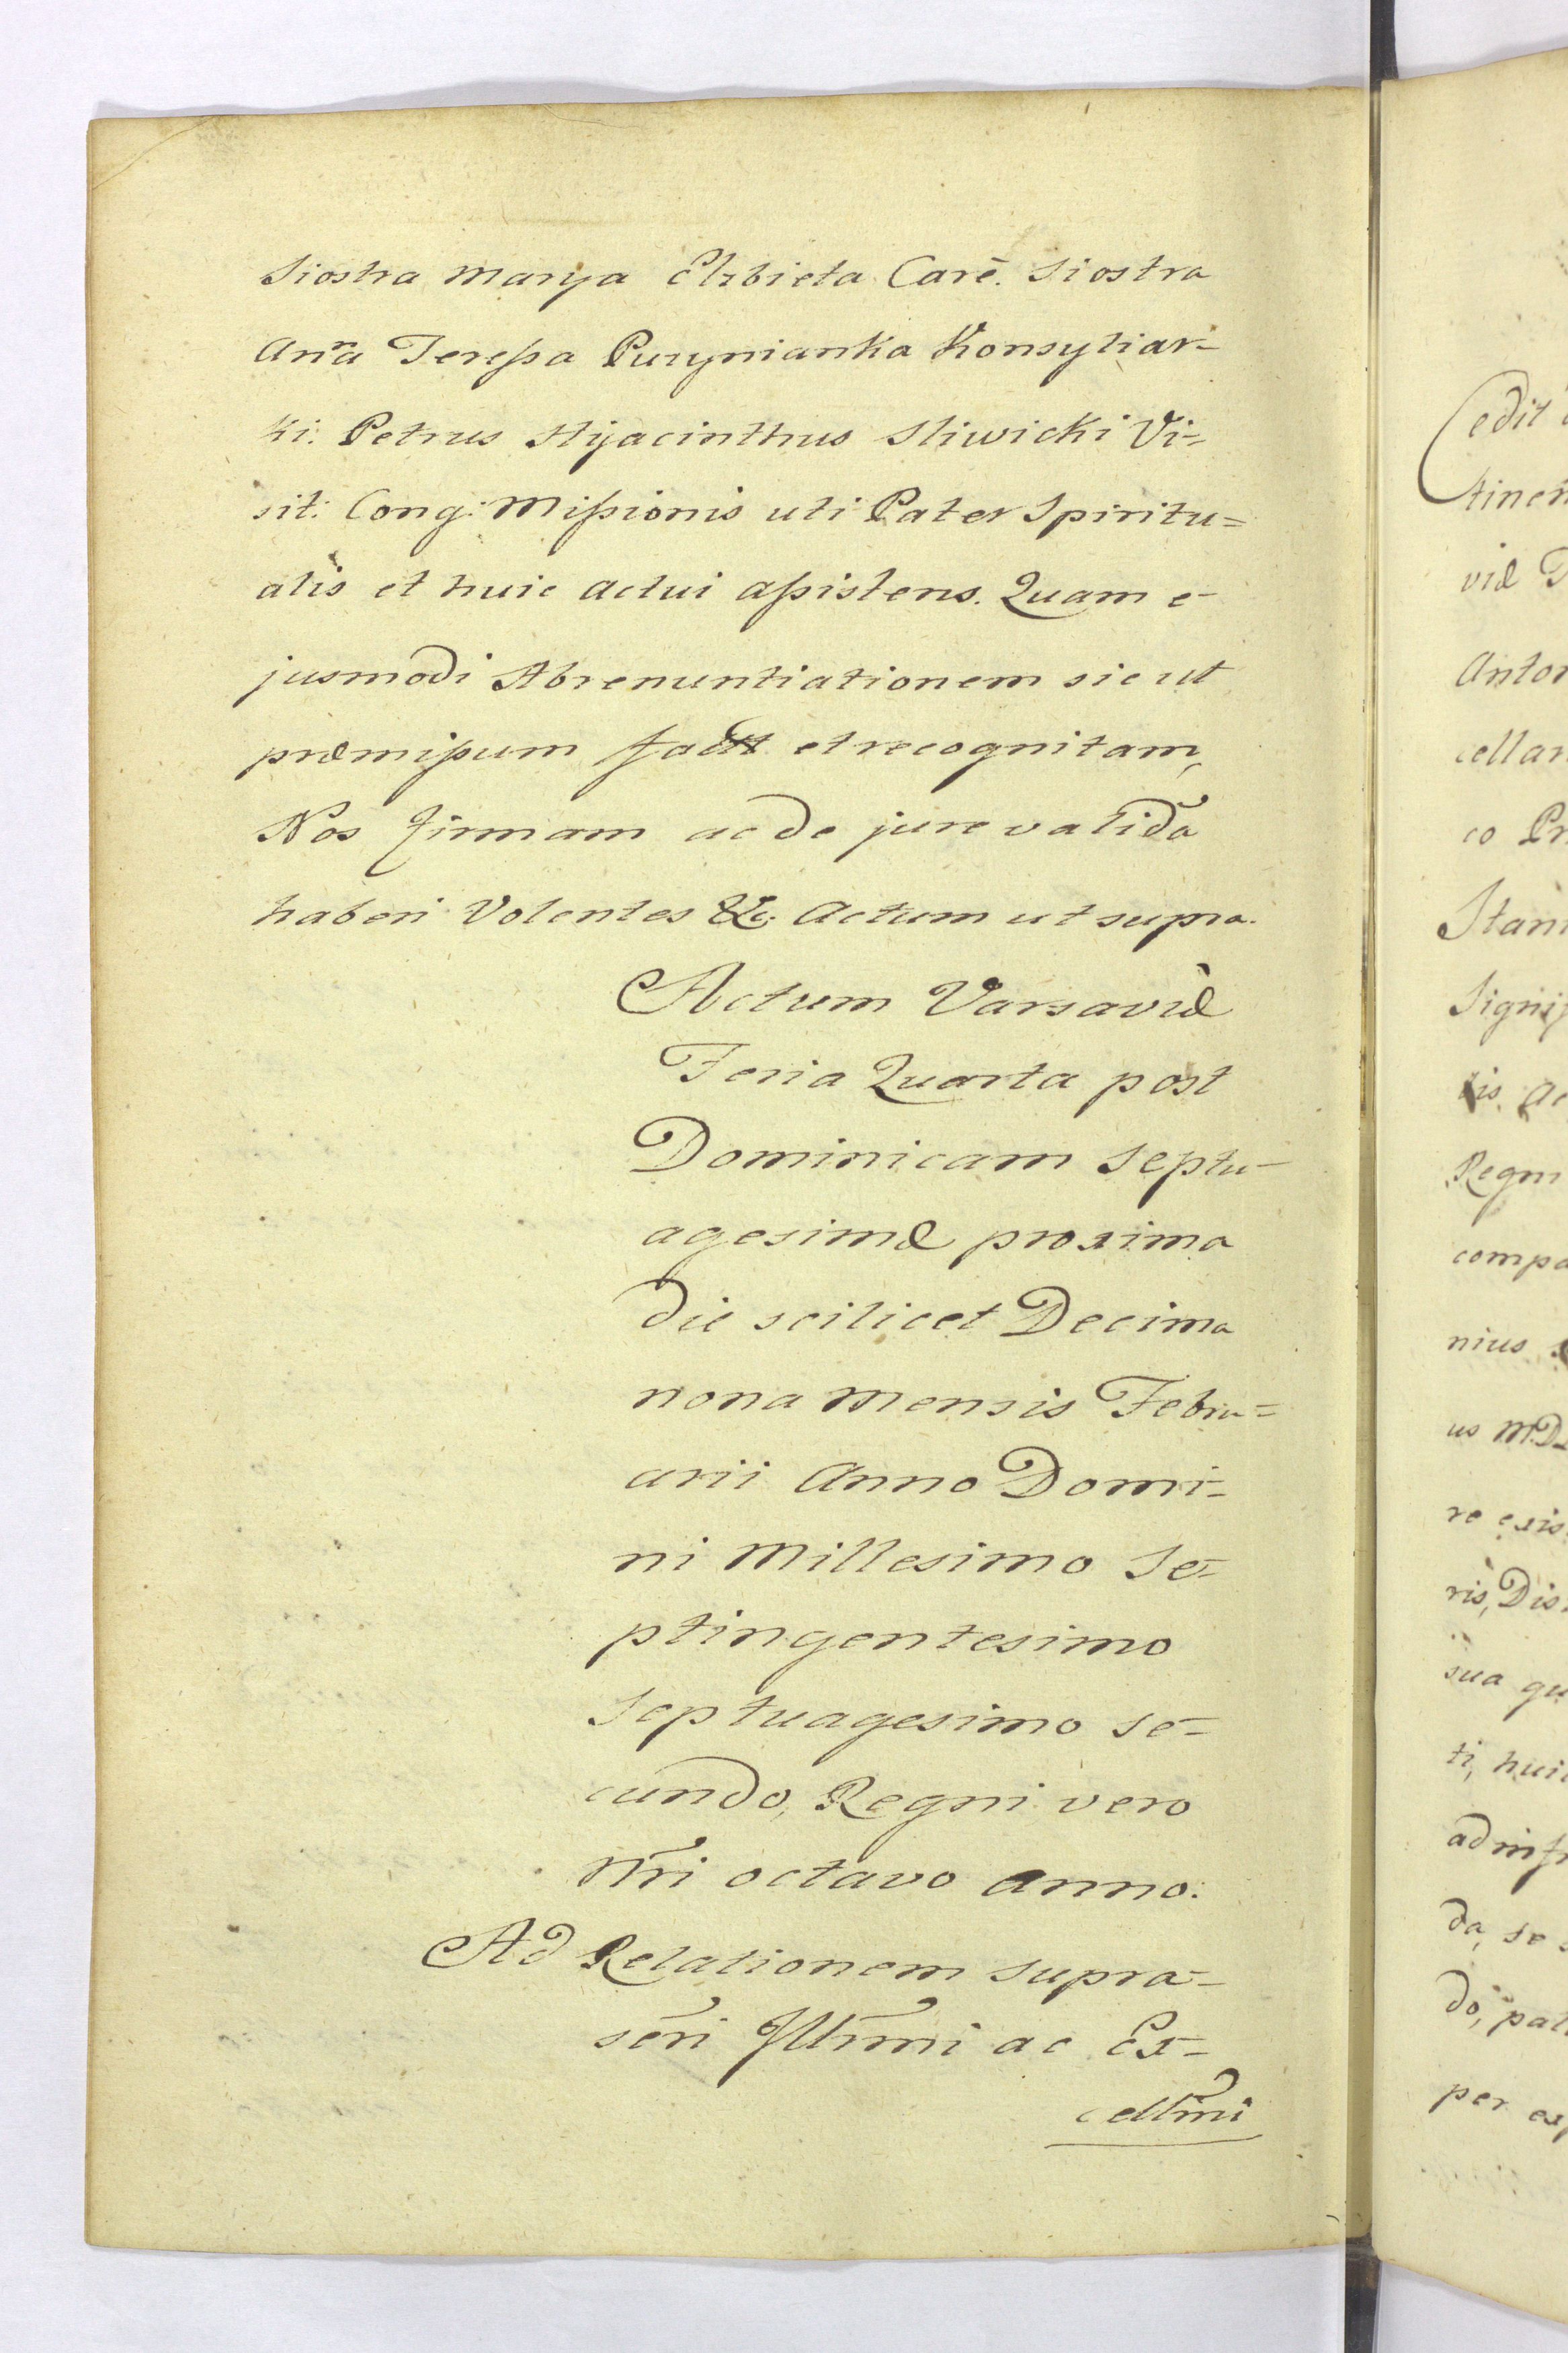 Siostra Marya Elzbieta Carē. Siostra
Anna Teressa Puzynianka Konsyliar-
ki. Petrus Hyacinthus Sliwicki Vi=
sit: Cong: Missionis uti Pater Spiritu=
alis et huic actui assistens. Quam e-
jusmodi Abrenuntiationem sic ut
præmissum et recognitam,
Nos firmam ac de jure validā
haberi Volentes &c: Actum ut supra.
Actum Varsaviæ
Feria Quarta post
Dominicam Septu-
agesimæ proxima
die scilicet Decima
nona Mensis Febru=
arii Anno Domi-
ni Millesimo Se-
ptingentesimo
Septuagesimo se-
cundo, Regni vero
Nri octavo anno.
Ad Relationem supra-
scri Illmi ac Ex-
cellmi
Cedit
tinen
viæ
Anton
cellar
co Pr
Stani
Signif
Regni
compa
nius
us MD
re exis
ris, Dis
sua qu
ti, huic
ad infr
da, se
do, pat
per exp